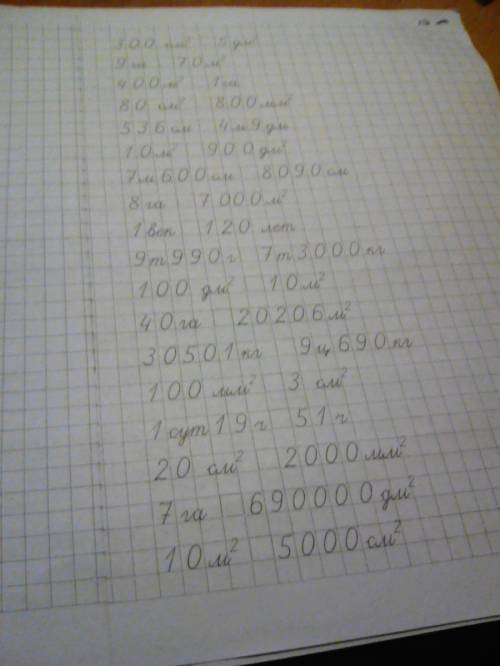 300 см² 5 дм²
9 га 70 м²
400 м² 1 га
80 см² 800 мм²
536 см 4 м 9 дм
10 м² 900 дм²
7 м 600 см 8090 см
8 га 7000 м²
1 век 120 лет
9 т 990 г 7 т 3000 кг
100 дм² 10 м²
40 га 20206 м²
30501 кг 9 ц 690 кг
100 мм² 3 см²
1 сут 19 ч 51 ч
20 см² 2000 мм²
7 га 690000 дм²
10 м² 5000 см²